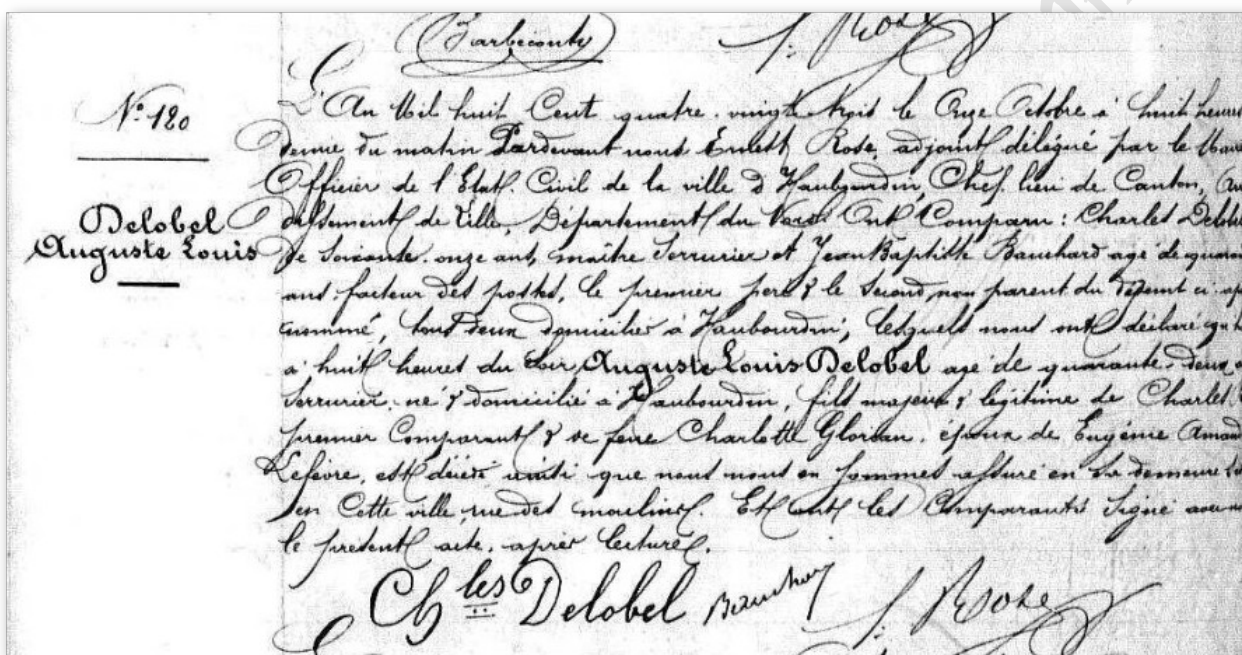 (Barbeconte)
J. Rose
N° 120
Delobel
Auguste Louis
L'An Mil huit Cent quatre-vingt trois le Onze Octobre à huit heures
demie du matin Pardevant nous Ernest Rose, adjoint délégué par le Maire
Officier de l'Etat-Civil de la ville d'Haubourdin, Chef-lieu de Canton, Arron
dissement de Lille, Département du Nord Ont Comparu: Charles Delobel
de soixante-onze ans, maître Serrurier et Jean Baptiste Bauchard agé de quarante
ans facteur des postes, le premier père & le second non parent du défunt ci-après
nommé, tous deux domiciliés à Haubourdin, lesquels nous ont déclaré qu'hier
à huit heures du soir, Auguste Louis Delobel agé de quarante-deux ans
Serrurier, né & domicilié à Haubourdin, fils majeur & légitime de Charles
premier Comparant & de feue Charlotte Glorian, époux de Eugénie Amand
Lefèvre, est décédé ainsi que nous nous en sommes assuré en sa demeure
en Cette ville, rue des moulins. Et ont les Comparants Signé avec nous
le présent acte, après lecture.
Ch les Delobel Bauchard J. Rose